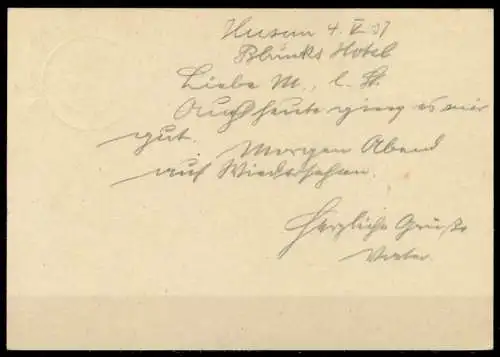 Husum 4. V. 37
Blunks Hotel
Liebe M., l. H.
Auch heute ging es mir
gut. Morgen Abend
auf Wiedersehen.
Herzliche Grüße
Vater.